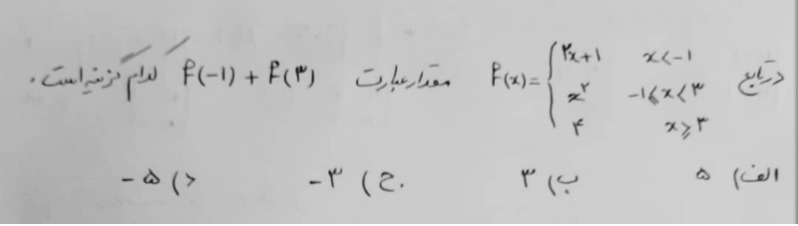 در تابع f(x)= { ۲x+۱ x<-۱
x^۲ -۱≤x<۳
۴ x≥۳ مقدار عبارت f(-۱) + f(۳) کدام گزینه است.
الف) ۵ ب) ۳ ج) -۳ د) -۵